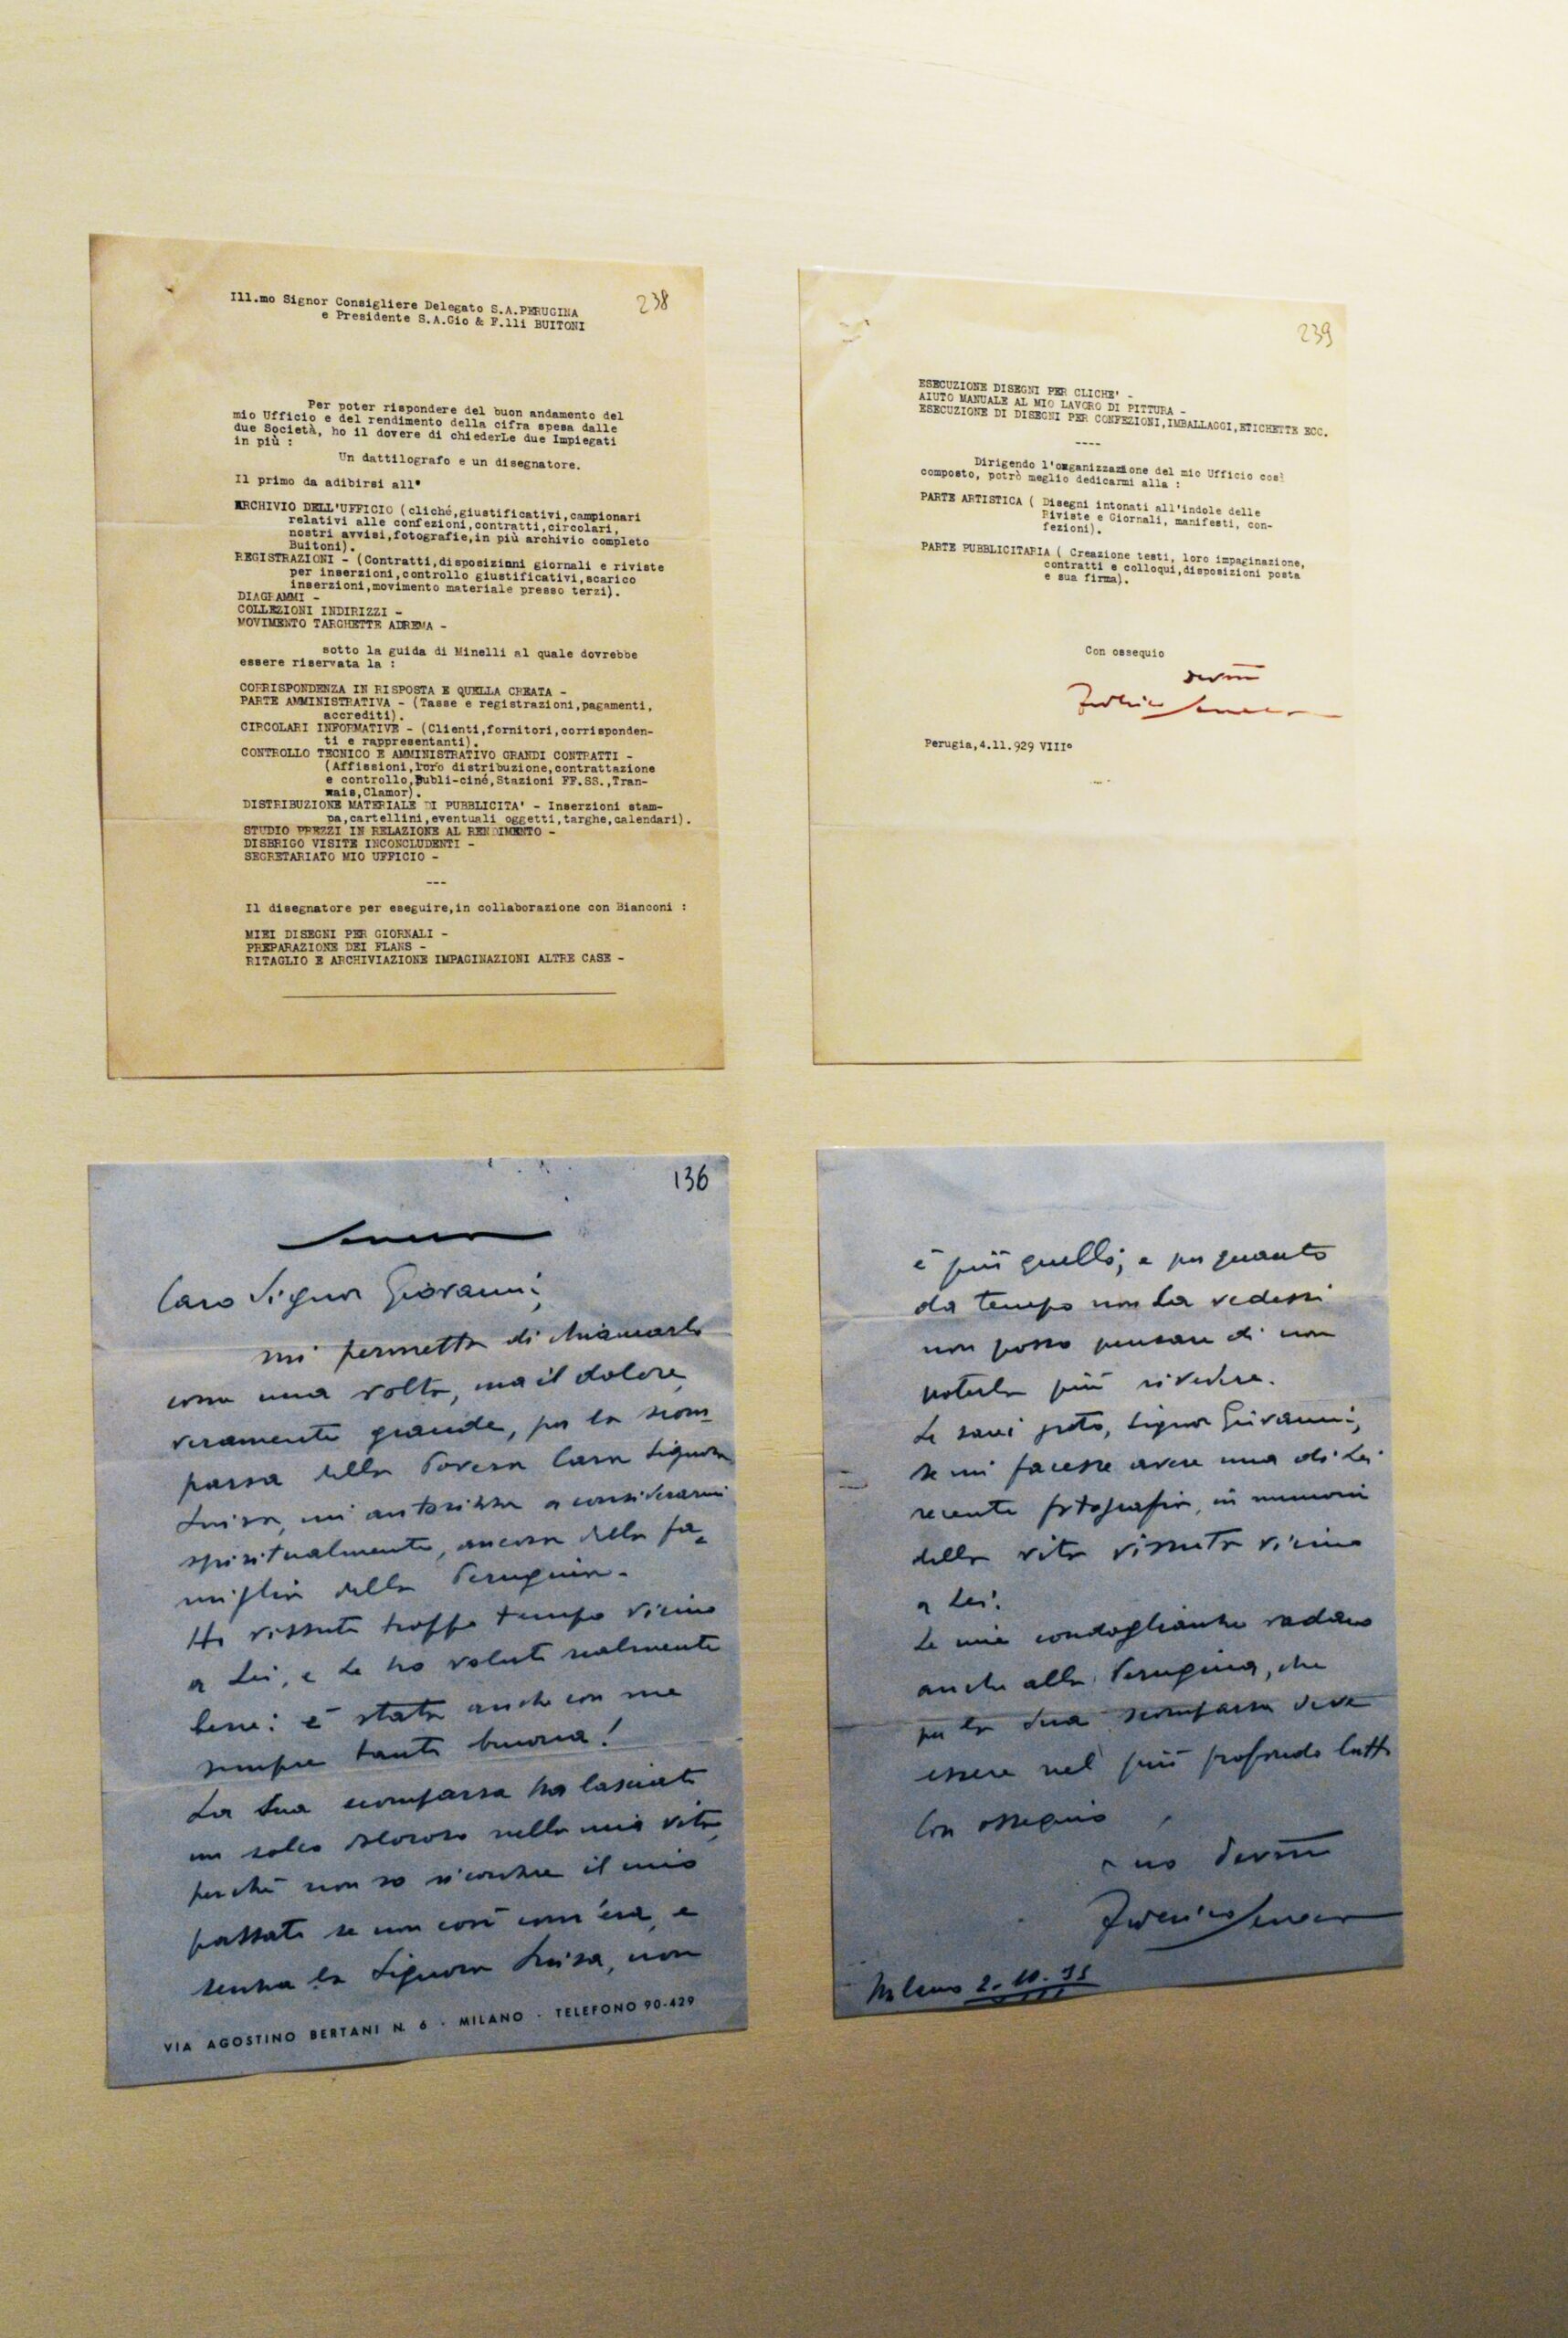 238
Ill.mo Signor Consigliere Delegato S.A.PERUGINA
e Presidente S.A.Gio & F.lli BUITONI
Per poter rispondere del buon andamento del
mio Ufficio e del rendimento della cifra spesa dalle
due Società, ho il dovere di chiederLe due Impiegati
in più :
Un dattilografo e un disegnatore.
Il primo da adibirsi all'
ARCHIVIO DELL'UFFICIO (cliché,giustificativi,campionari
relativi alle confezioni,contratti,circolari,
nostri avvisi,fotografie,in più archivio completo
Buitoni).
REGISTRAZIONI - (Contratti,disposizioni giornali e riviste
per inserzioni,controllo giustificativi,scarico
inserzioni,movimento materiale presso terzi).
DIAGRAMMI -
COLLEZIONI INDIRIZZI -
MOVIMENTO TARGHETTE ADREMA -
sotto la guida di Minelli al quale dovrebbe
essere riservata la :
CORRISPONDENZA IN RISPOSTA E QUELLA CREATA -
PARTE AMMINISTRATIVA - (Tasse e registrazioni,pagamenti,
accrediti).
CIRCOLARI INFORMATIVE - (Clienti,fornitori,corrisponden-
ti e rappresentanti).
CONTROLLO TECNICO E AMMINISTRATIVO GRANDI CONTRATTI -
(Affissioni,loro distribuzione,contrattazione
e controllo,Publi-ciné,Stazioni FF.SS.,Tran-
wais,Clamor).
DISTRIBUZIONE MATERIALE DI PUBBLICITA' - Inserzioni stam-
pa,cartellini,eventuali oggetti,targhe,calendari).
STUDIO PREZZI IN RELAZIONE AL RENDIMENTO -
DISBRIGO VISITE INCONCLUDENTI -
SEGRETARIATO MIO UFFICIO -
---
Il disegnatore per eseguire,in collaborazione con Bianconi :
MIEI DISEGNI PER GIORNALI -
PREPARAZIONE DEI FLANS -
RITAGLIO E ARCHIVIAZIONE IMPAGINAZIONI ALTRE CASE -
239
ESECUZIONE DISEGNI PER CLICHE' -
AIUTO MANUALE AL MIO LAVORO DI PITTURA -
ESECUZIONE DI DISEGNI PER CONFEZIONI,IMBALLAGGI,ETICHETTE ECC.
----
Dirigendo l'organizzazione del mio Ufficio così
composto, potrò meglio dedicarmi alla :
PARTE ARTISTICA ( Disegni intonati all'indole delle
Riviste e Giornali, manifesti, con-
fezioni).
PARTE PUBBLICITARIA ( Creazione testi, loro impaginazione,
contratti e colloqui,disposizioni posta
e sua firma).
Con ossequio
dev.mo
Federico Seneca
Perugia,4.11.929 VIII°
136
Seneca
Caro Signor Giovanni,
mi permetta di chiamarLa
come una volta, ma il dolore,
veramente grande, per la scom-
parsa della Povera Cara Signora
Luisa, mi autorizza a considerarmi
spiritualmente, ancora della fa-
miglia della Perugina.
Ho vissuto troppo tempo vicino
a Lei, e Le ho voluto realmente
bene: è stata anche con me
sempre tanto buona!
La Sua scomparsa ha lasciato
un solco doloroso nella mia vita,
perchè non so ricordare il mio
passato se non così com'era, e
senza la Signora Luisa, non
VIA AGOSTINO BERTANI N. 6 - MILANO - TELEFONO 90-429
è più quello; e per quanto
da tempo non La vedessi
non posso pensare di non
poterla più rivedere.
Le sarei grato, Signor Giovanni,
se mi facesse avere una di Lei
recente fotografia, in memoria
della vita vissuta vicino
a Lei.
Le mie condoglianze vadano
anche alla Perugina, che
per la Sua scomparsa deve
essere nel più profondo lutto
Con ossequio
suo dev.mo
Federico Seneca
Milano 2.10.35